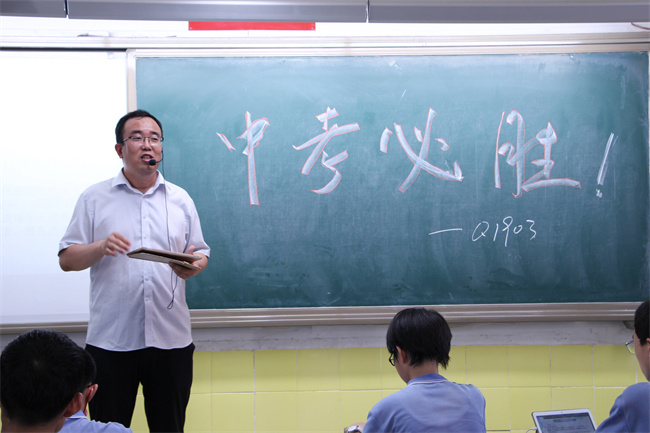 中考必胜!
—Q1903